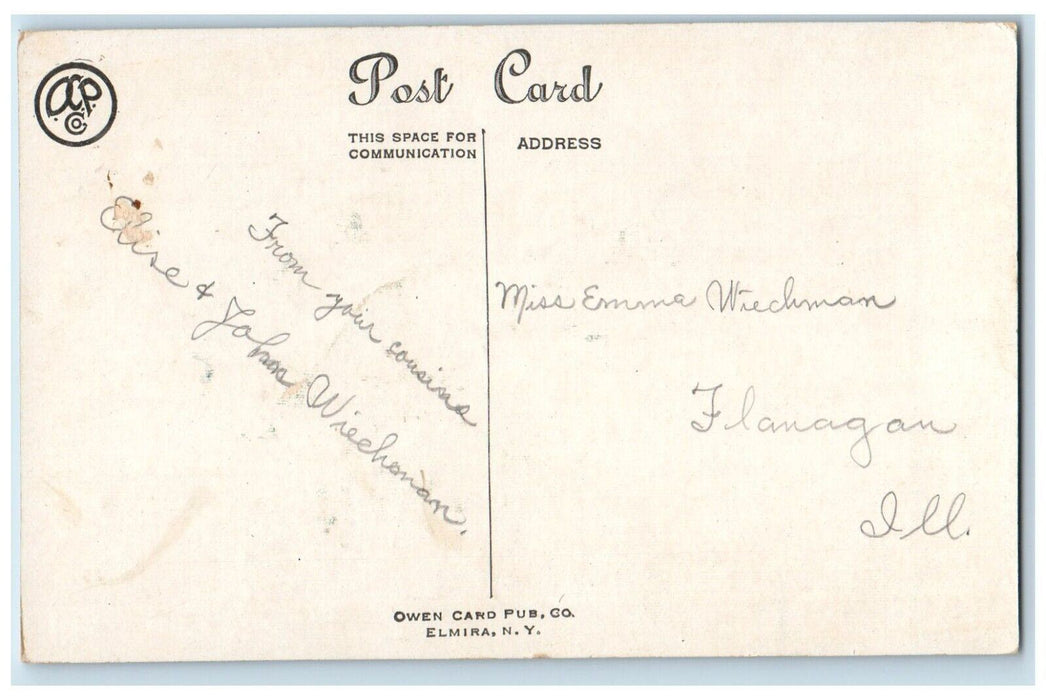 Post Card
THIS SPACE FOR
COMMUNICATION
ADDRESS
From your cousins
Elise & John Wiechman.
Miss Emma Wiechman
Flanagan
Ill.
OWEN CARD PUB. CO.
ELMIRA, N. Y.